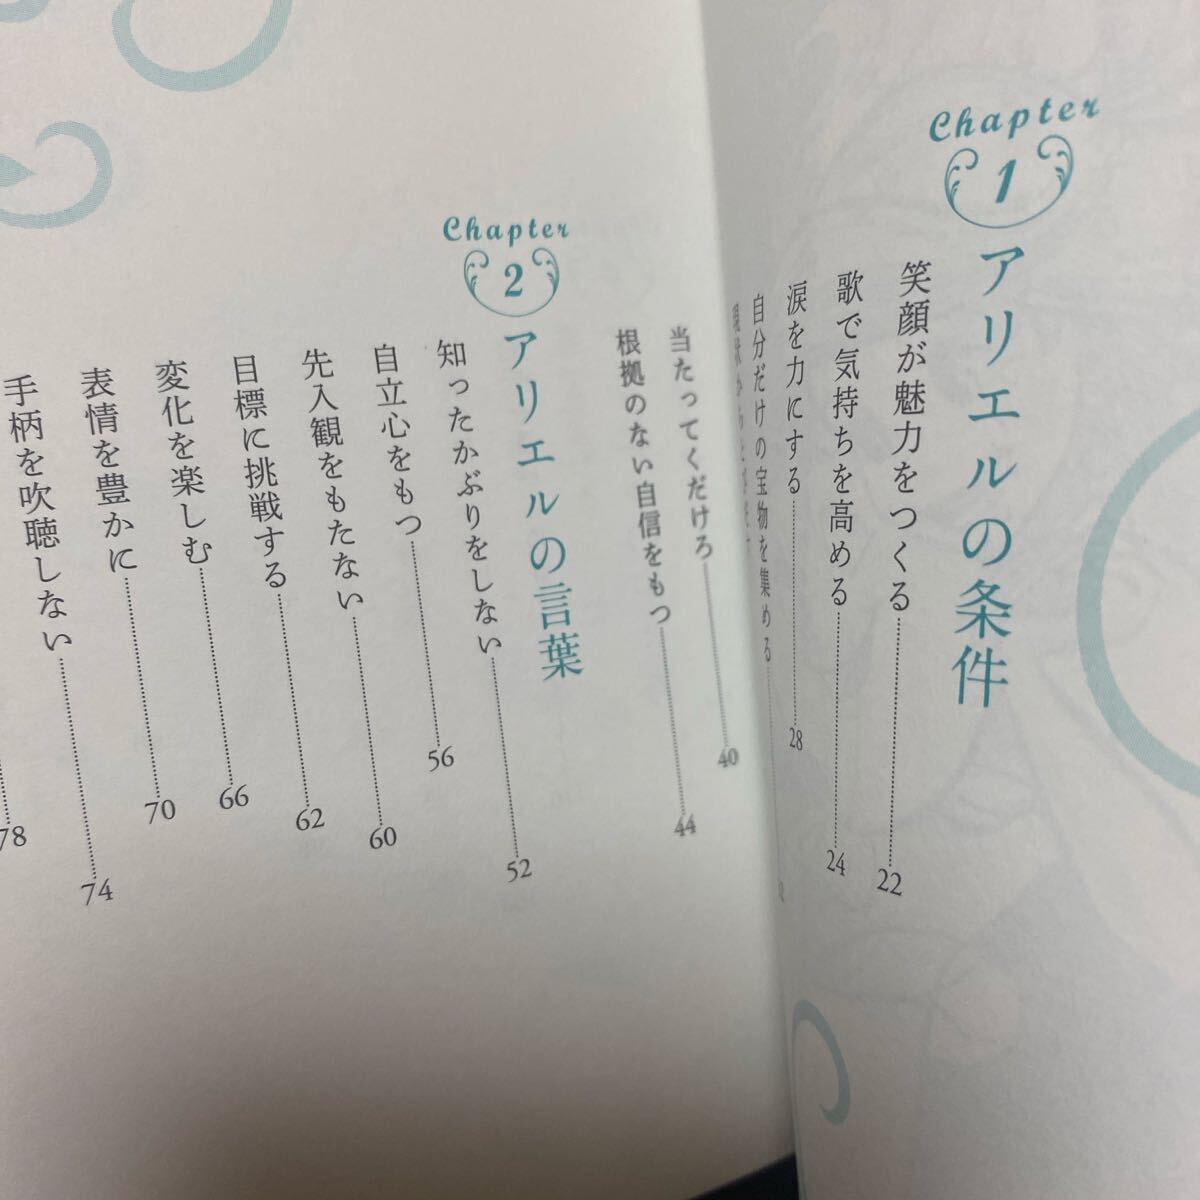 Chapter
1
アリエルの条件
笑顔が魅力をつくる 22
歌で気持ちを高める 24
涙を力にする 28
自分だけの宝物を集める
当たってくだけろ 40
根拠のない自信をもつ 44
Chapter
2
アリエルの言葉
知ったかぶりをしない 52
自立心をもつ 56
先入観をもたない 60
目標に挑戦する 62
変化を楽しむ 66
表情を豊かに 70
手柄を吹聴しない 74
78